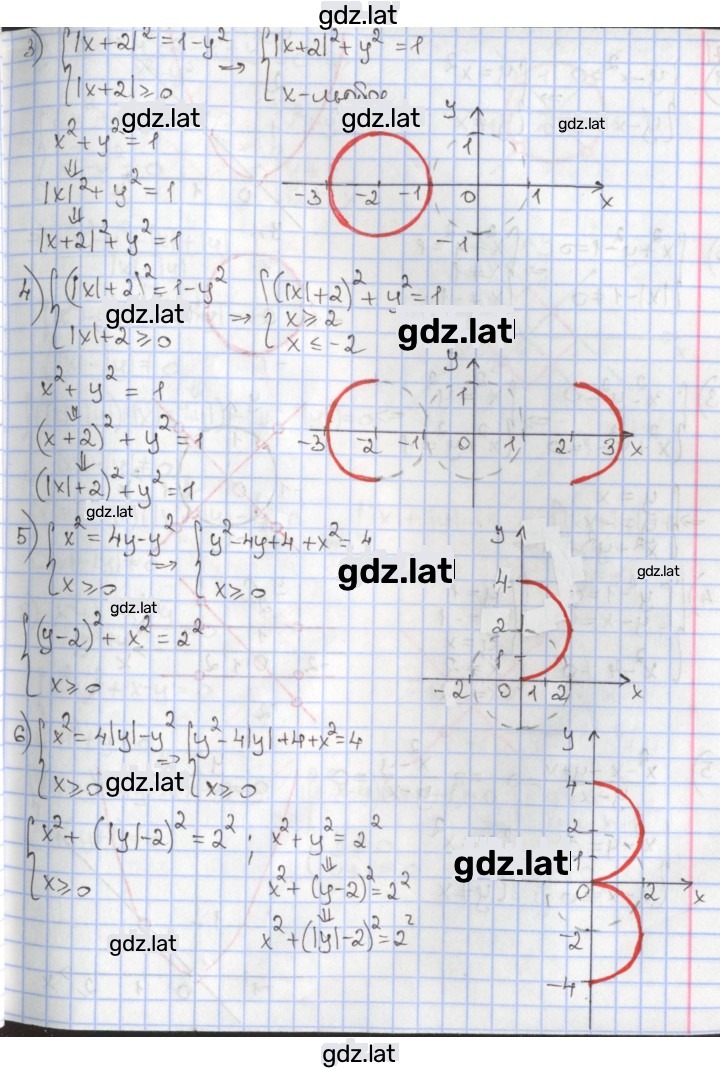 gdz.lat
3) { |x+2|² = 1-y² ⇒ { |x+2|² + y² = 1
|x+2| ≥ 0 x - любое
gdz.lat gdz.lat gdz.lat
x² + y² = 1
⇓
|x|² + y² = 1
⇓
|x+2|² + y² = 1
y 1 -3 -2 -1 0 1 x -1
4) { (|x|+2)² = 1-y² ⇒ { (|x|+2)² + y² = 1
|x|+2 ≥ 0 x ≥ 2
x ≤ -2
gdz.lat gdz.lat
x² + y² = 1
⇓
(x+2)² + y² = 1
⇓
(|x|+2)² + y² = 1
y 1 -3 -2 -1 0 1 2 3 x
gdz.lat
5) { x² = 4y-y² ⇒ { y²-4y+4+x² = 4
x ≥ 0 x ≥ 0
gdz.lat gdz.lat
gdz.lat
{ (y-2)² + x² = 2²
x ≥ 0
y 4 2 1 -2 0 1 2 x
6) { x² = 4|y|-y² ⇒ { y²-4|y|+4+x² = 4
x ≥ 0 x ≥ 0
gdz.lat
{ x² + (|y|-2)² = 2² ; x² + y² = 2²
x ≥ 0
⇓
x² + (y-2)² = 2²
⇓
x² + (|y|-2)² = 2²
gdz.lat
y 4 2 1 0 2 x -2 -4
gdz.lat
gdz.lat